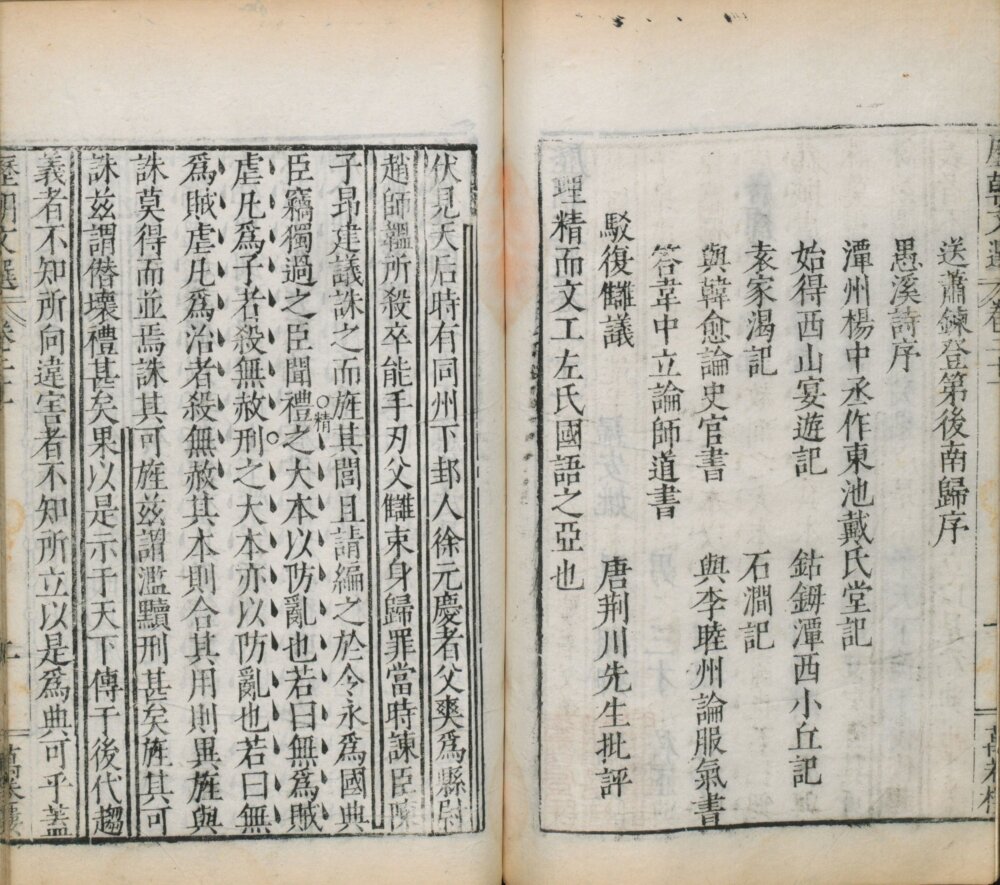 送蕭鍊登第後南歸序
愚溪詩序
潭州楊中丞作東池戴氏堂記
始得西山宴遊記　鈷鉧潭西小丘記
袁家渴記　石澗記
與韓愈論史官書　與李睦州論服氣書
答韋中立論師道書
駁復讎議　唐荆川先生批評
理精而文工左氏國語之亞也
伏見天后時有同州下邽人徐元慶者父爽爲縣尉
趙師韞所殺卒能手刃父讎束身歸罪當時諫臣陳
子昂建議誅之而旌其閭且請編之於令永爲國典
精
臣竊獨過之臣聞禮之大本以防亂也若曰無爲賊
虐凡爲子者殺無赦刑之大本亦以防亂也若曰無
爲賊虐凡爲治者殺無赦其本則合其用則異旌與
誅莫得而並焉誅其可旌兹謂濫黷刑甚矣旌其可
誅兹謂僭壞禮甚矣果以是示于天下傳于後代趨
義者不知所向違害者不知所立以是爲典可乎蓋